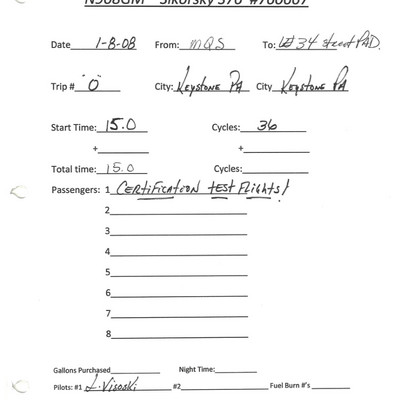 N908GM Sikorsky S76 #760667
Date 1-8-08 From: MQS To: W 34 street PAD.
Trip # "0" City: Keystone PA City Keystone PA
Start Time: 15.0 Cycles: 36
+ +
Total time: 15.0 Cycles:
Passengers: 1 Certification test Flights!
2
3
4
5
6
7
8
Gallons Purchased Night Time:
Pilots: #1 L. Visoski #2 Fuel Burn #'s